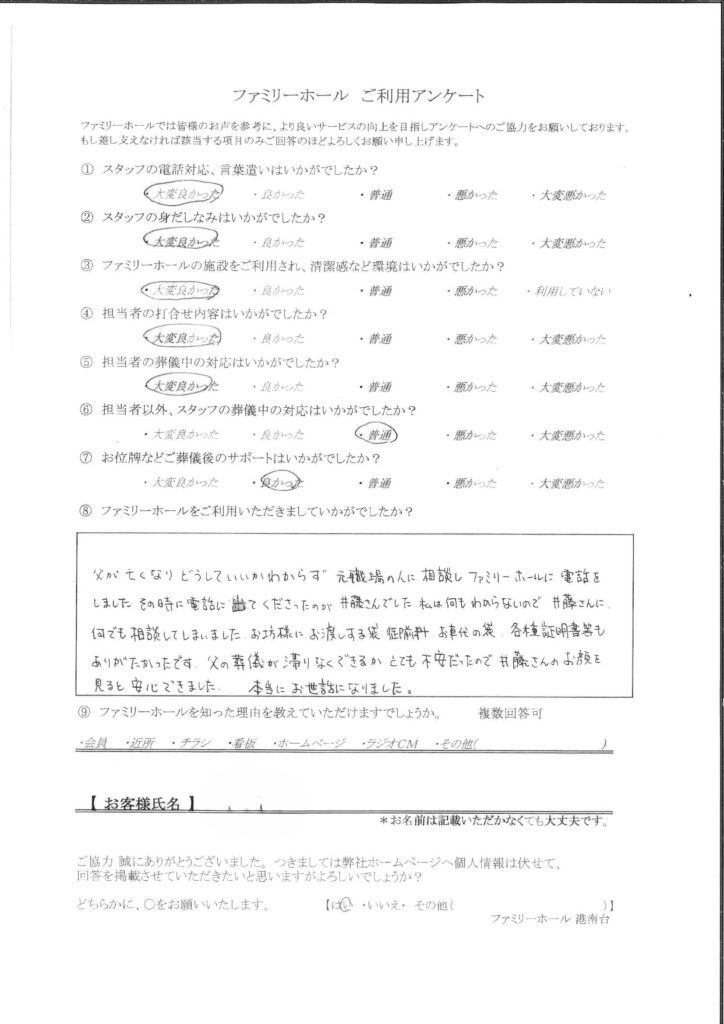 ファミリーホール ご利用アンケート
ファミリーホールでは皆様のお声を参考に、より良いサービスの向上を目指しアンケートへのご協力をお願いしております。
もし差し支えなければ該当する項目のみご回答のほどよろしくお願い申し上げます。
① スタッフの電話対応、言葉遣いはいかがでしたか？
・大変良かった ・良かった ・普通 ・悪かった ・大変悪かった
② スタッフの身だしなみはいかがでしたか？
・大変良かった ・良かった ・普通 ・悪かった ・大変悪かった
③ ファミリーホールの施設をご利用され、清潔感など環境はいかがでしたか？
・大変良かった ・良かった ・普通 ・悪かった ・利用していない
④ 担当者の打合せ内容はいかがでしたか？
・大変良かった ・良かった ・普通 ・悪かった ・大変悪かった
⑤ 担当者の葬儀中の対応はいかがでしたか？
・大変良かった ・良かった ・普通 ・悪かった ・大変悪かった
⑥ 担当者以外、スタッフの葬儀中の対応はいかがでしたか？
・大変良かった ・良かった ・普通 ・悪かった ・大変悪かった
⑦ お位牌などご葬儀後のサポートはいかがでしたか？
・大変良かった ・良かった ・普通 ・悪かった ・大変悪かった
⑧ ファミリーホールをご利用いただきましていかがでしたか？
父が亡くなりどうしていいかわからず 元職場の人に相談しファミリーホールに電話を
しました その時に電話に出てくださったのが 井藤さんでした 私は何もわからないので 井藤さんに
何でも相談してしまいました お坊様にお渡しする袋 お車代の袋 各種証明書等も
ありがたかったです. 父の葬儀が滞りなくできるか とても不安だったので 井藤さんのお顔を
見ると安心できました. 本当にお世話になりました。
⑨ ファミリーホールを知った理由を教えていただけますでしょうか。 複数回答可
・会員 ・近所 ・チラシ ・看板 ・ホームページ ・ラジオCM ・その他( )
【 お客様氏名 】
＊お名前は記載いただかなくても大丈夫です。
ご協力 誠にありがとうございました。つきましては弊社ホームページへ個人情報は伏せて、
回答を掲載させていただきたいと思いますがよろしいでしょうか？
どちらかに、○をお願いいたします。 【はい ・いいえ・ その他( )】
ファミリーホール 港南台